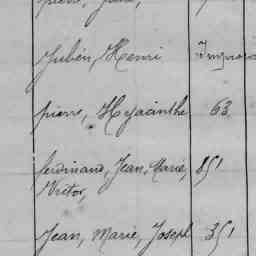 Jubén, Henri
pierre, Hyacinthe 63
ferdinand, Jean, Marie, 851
Victor,
Jean, Marie, Joseph 351